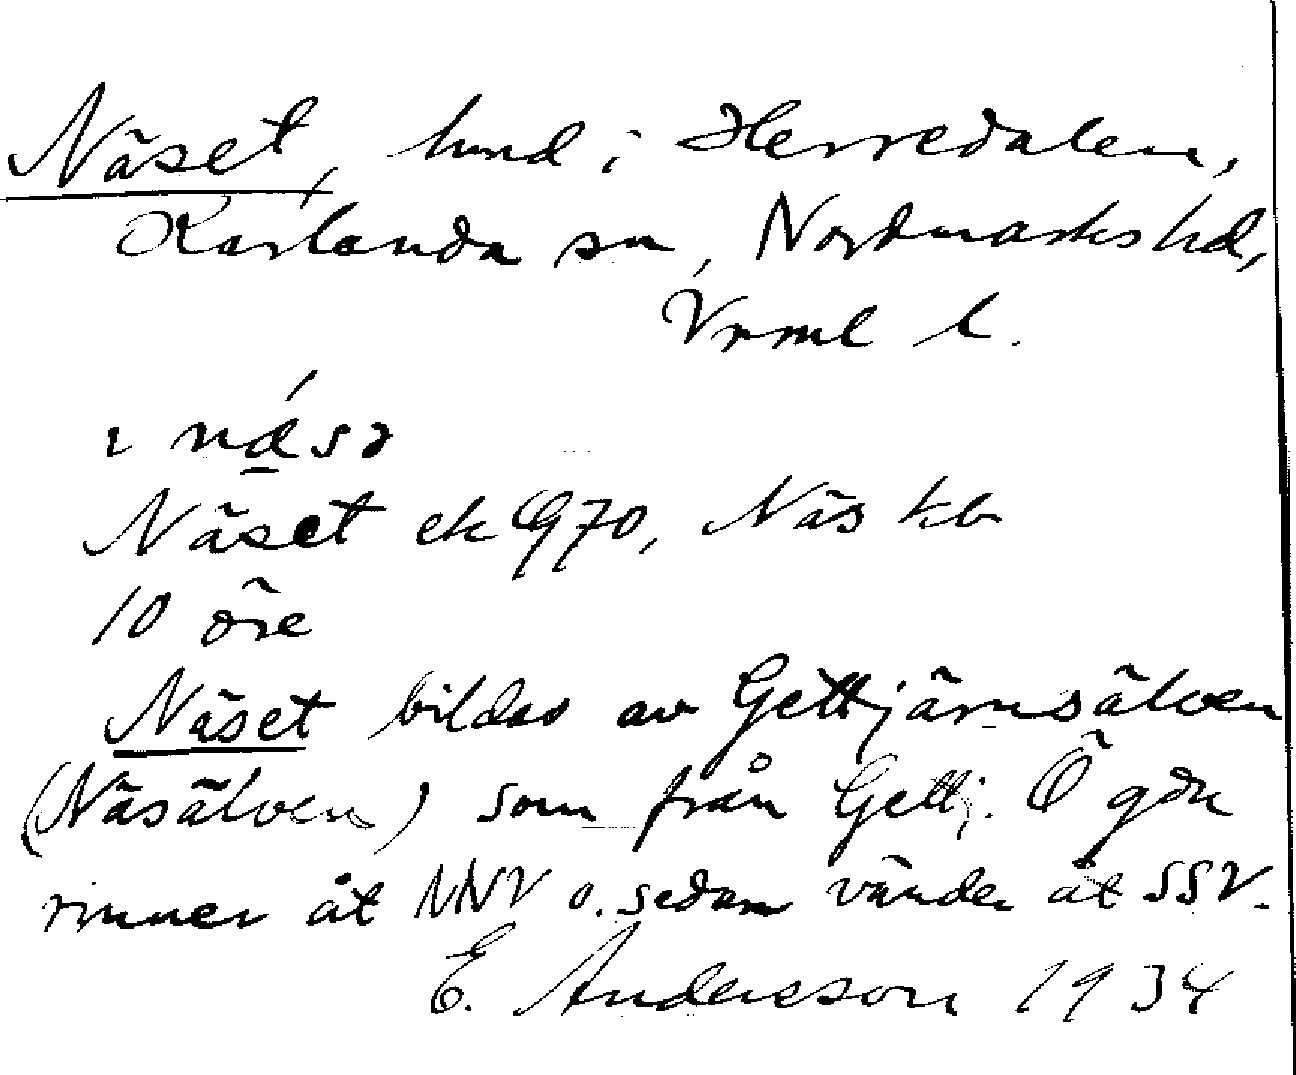 Näset, hmd i Herredalen,
Karlanda sn, Nordmarks hd,
Vrml l.
ı nǽ̱sə
Näset ek G970, Näs kb
10 öre
Näset bildas av Gettjärnsälven
(Näsälven) som från Gettj. Ö gdn
rinner åt NNV o. sedan vänder åt SSV.
E. Andersson 1934